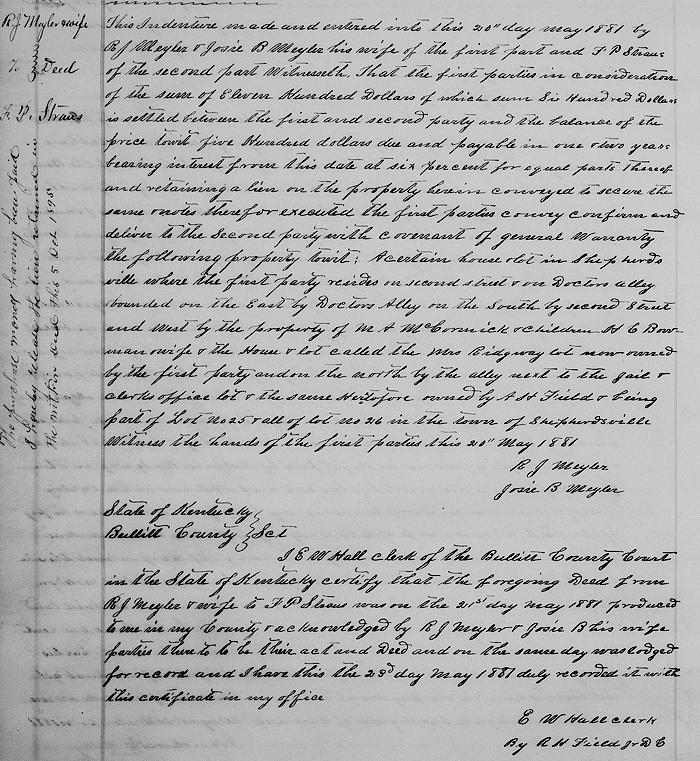 R J Meyler & wife
To Deed
F. P. Straus
The purchase money having been paid
I hereby release the lien retained in
the within deed This 5 Oct 1895
This Indenture made and entered into this 20" day may 1881 by
R J Meyler & Josie B Meyler his wife of the first part and F P Straus
of the second part Witnesseth, That the first parties in consideration
of the sum of Eleven Hundred Dollars of which sum Six Hundred Dollars
is settled between the first and second party and the balance of the
price towit five Hundred dollars due and payable in one & two years
bearing interest from this date at six percent for equal parts Thereof
and retaining a lien on the property herein conveyed to secure the
same & notes therefor executed the first parties convey confirm and
deliver to the Second party with covenant of general Warranty
the following property towit; A certain house & lot in Shepherds
ville where the first party resides on second street & on Doctors alley
bounded on the East by Doctors Alley on the South by second Street
and West by the property of M A McCormick & Children H C Bow-
man & wife & the House & lot called the Mrs Ridgway lot now owned
by the first party and on the north by the alley next to the jail &
clerks office lot & the same Heretofore owned by A H Field & being
part of Lot No 25 & all of lot no 26 in the town of Shepherdsville
Witness the hands of the first parties this 20" May 1881
R J Meyler
Josie B Meyler
State of Kentucky
Bullitt County } Sct
I E W Hall Clerk of the Bullitt County Court
in the State of Kentucky certify that the foregoing Deed from
R J Meyler & wife to F P Straus was on the 21st day may 1881 produced
to me in my County & acknowledged by R J Meyler & Josie B his wife
parties there to to be their act and Deed and on the same day was lodged
for record and I have this the 23d day May 1881 duly recorded it with
this certificate in my office
E W Hall clerk
By R H Field Jr D C